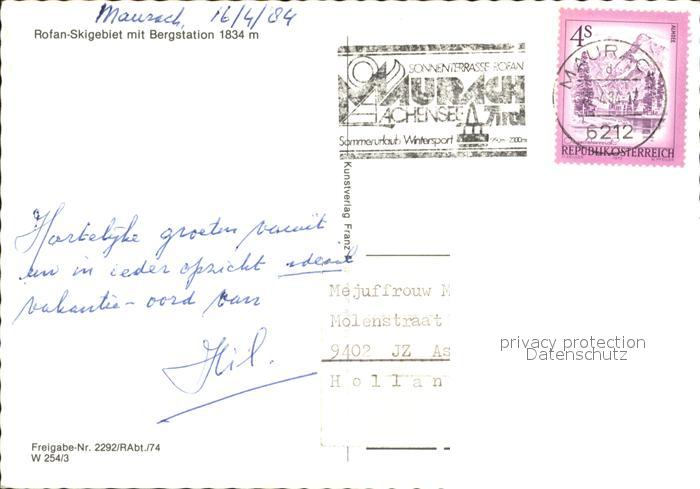 Maurach, 16/4/84
Rofan-Skigebiet mit Bergstation 1834 m
SONNENTERRASSE ROFAN
MAURACH
ACHENSEE Tirol
Sommerurlaub Wintersport
4S
ALMSEE
REPUBLIK ÖSTERREICH
MAURACH
6212
Kunstverlag Franz
Hartelijke groeten vanuit
een in ieder opzicht ideaal
vakantie-oord van
Hil.
Mejuffrouw M
Molenstraat
9402 JZ As
Hollan
privacy protection
Datenschutz
Freigabe-Nr. 2292/RAbt./74
W 254/3